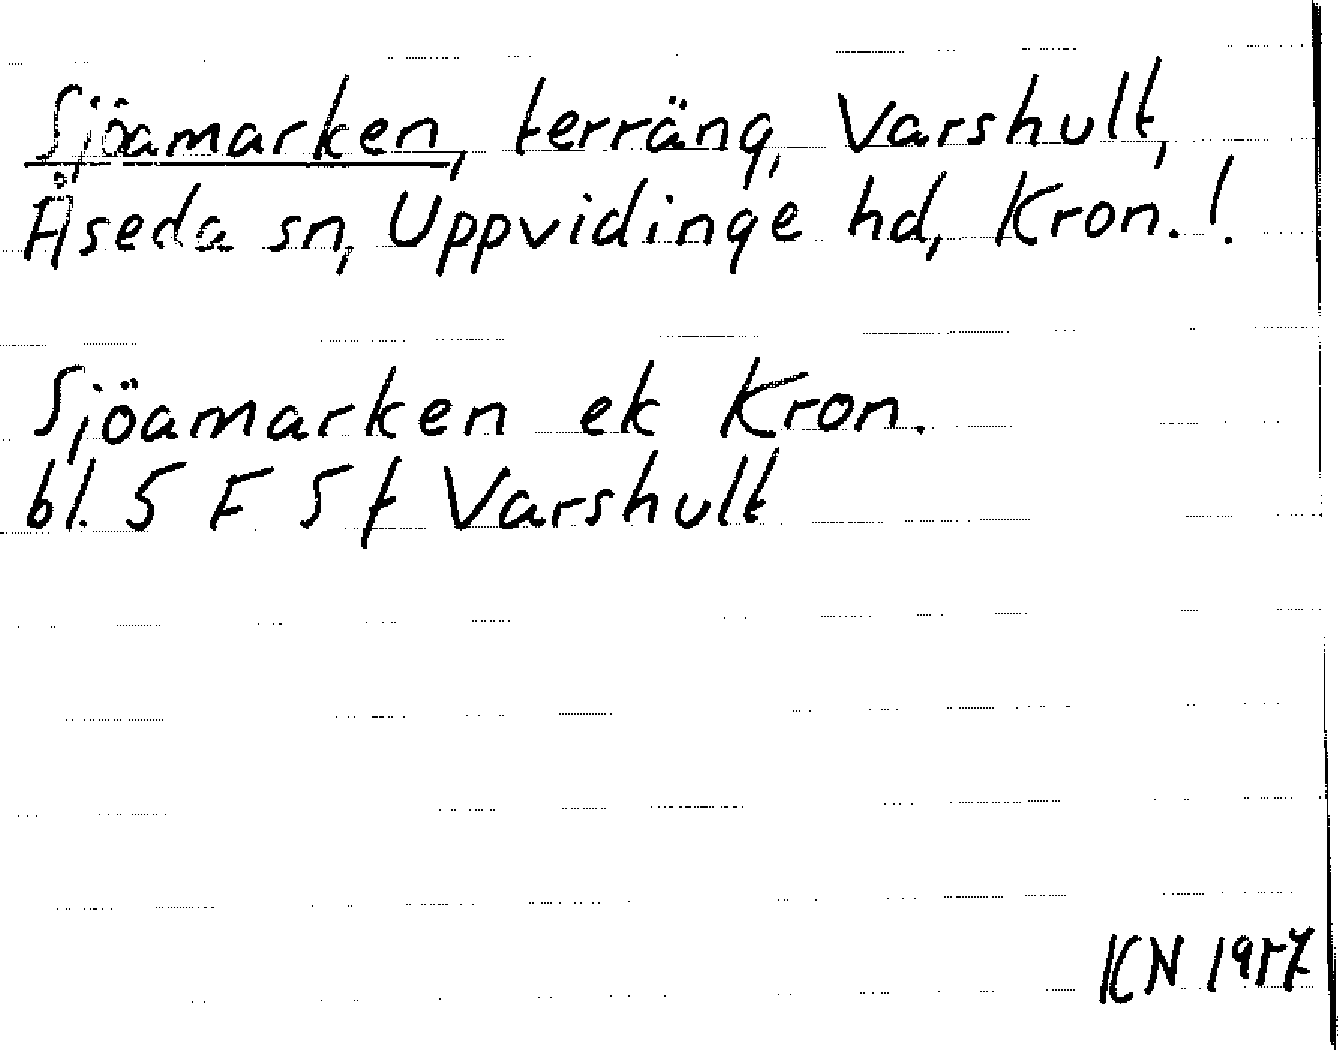 Sjöamarken, terräng, Varshult,
Åseda sn, Uppvidinge hd, Kron.!
Sjöamarken ek Kron.
bl. 5 F 5 f Varshult
KN 1957